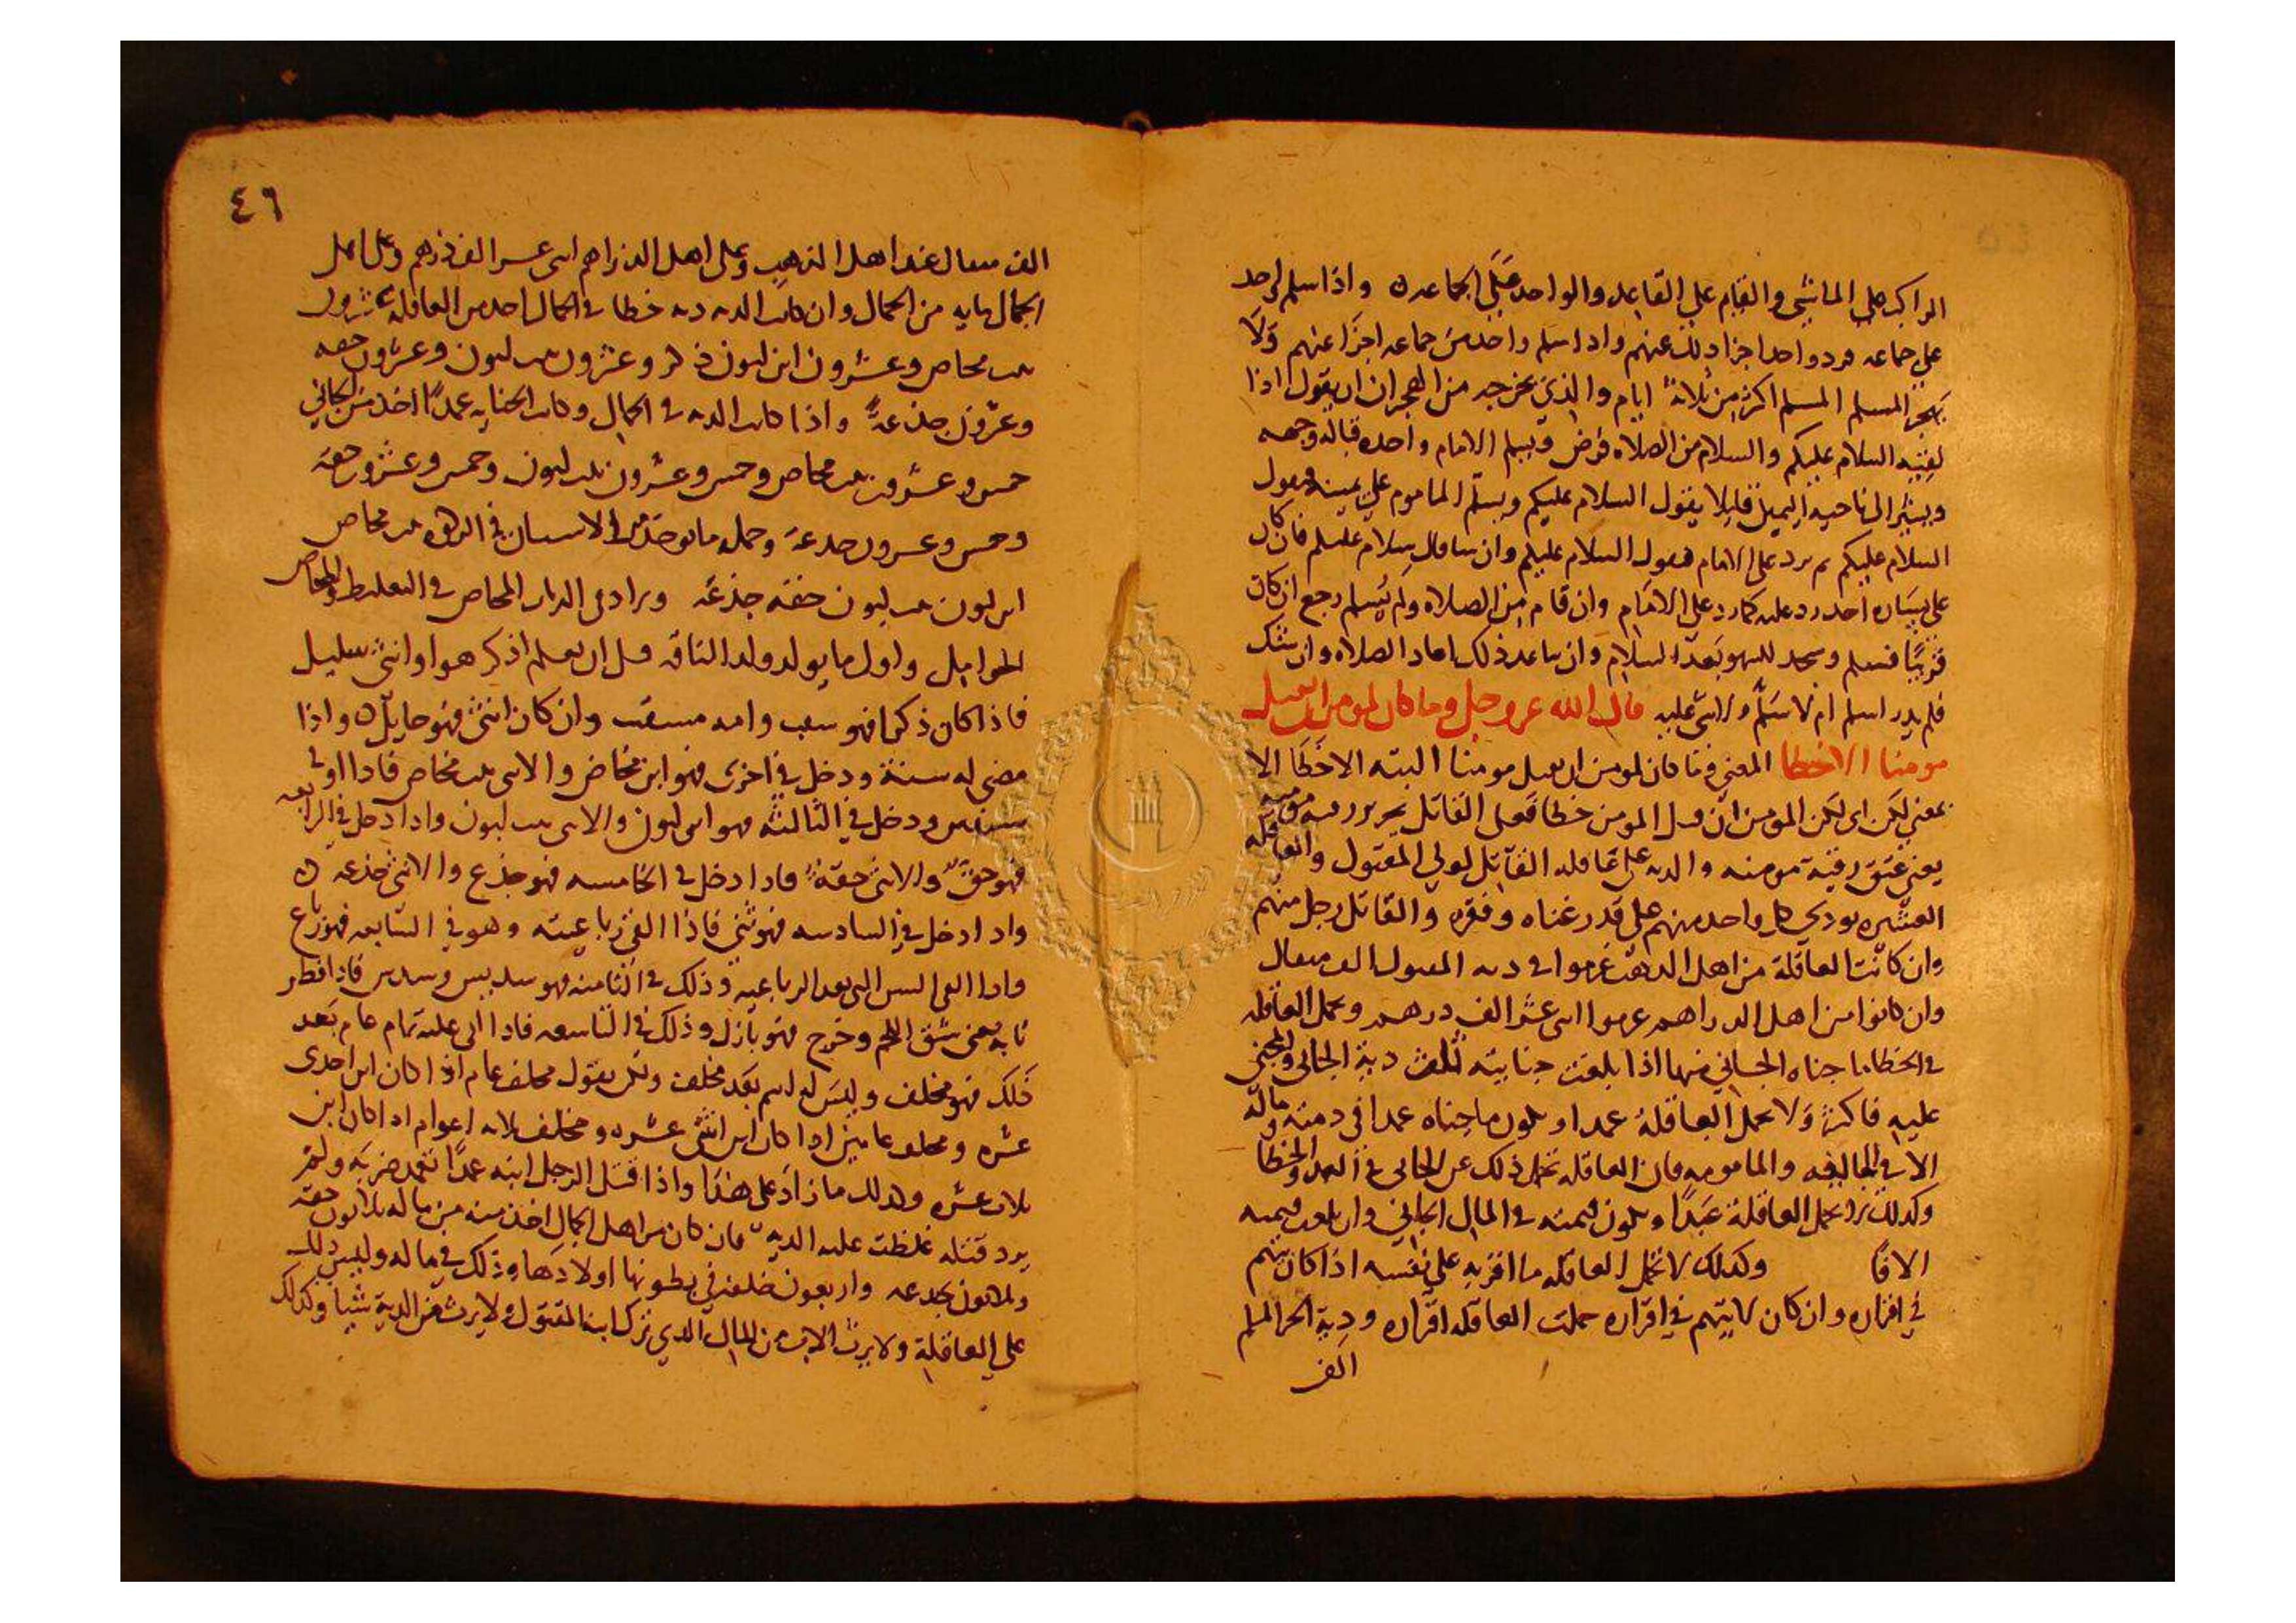 الراكب على الماشي والقايم على القاعد والواحد على الجماعه واذا سلم واحد
على جماعه فرد واحد اجزا ذلك عنهم واذا سلم واحد من جماعه اجزا عنهم ولا
يهجر المسلم المسلم اكثر من ثلاثة ايام والذي يخرجه من الهجران ان يقول اذا
لقيه السلام عليكم والسلام من الصلاه فرض ويسلم الامام واحده قباله وجهه
ويشير الى ناحيه اليمين قليلا يقول السلام عليكم ويسلم الماموم على يمينه فيقول
السلام عليكم ثم يرد على الامام فيقول السلام عليكم وان شا قال سلام عليكم فان كان
على يساره احد رد عليه كما رد على الامام وان قام من الصلاه ولم يسلم رجع ان كان
قريبا فسلم وسجد للسهو بعد السلام وان تباعد ذلك اعاد الصلاه وان شك
فلم يدر اسلم ام لا سلم ولا شي عليه قال الله عز وجل وما كان لمومن ان يقتل
مومنا الا خطا المعنى وما كان لمومن ان يقتل مومنا البته الا خطا الا
بمعنى لكن اي لكن المومن ان قتل المومن خطا فعلى القاتل تحرير رقبه مومنه
يعني عتق رقبة مومنه والديه على عاقله القاتل لولي المقتول والعاقله
العشيره يودي كل واحد منهم على قدر غناه وفقره والقاتل رجل منهم
وان كانت العاقلة من اهل الذهب غرموا في ديه المقتول الف مثقال
وان كانوا من اهل الدراهم غرموا اثنى عشر الف درهم وتحمل العاقله
في الخطا ما جناه الجاني منها اذا بلغت جنايته ثلث دية الجاني والمجني
عليه فاكثر ولا تحمل العاقلة عمدا ويكون ما جناه عمدا في ذمته وماله
الا في الجايفه والمامومه فان العاقله تحمل ذلك عن الجاني في العمد والخطا
وكذلك لا تحمل العاقلة عبدا ويكون قيمته في المال الجاني وان بلغت قيمته
الافا وكذلك لا تحمل العاقله ما اقر به على نفسه اذا كان يتهم
في اقراره وان كان لا يتهم في اقراره حملت العاقله اقراره ودية الحر المسلم
الف
٤٦
الف مثقال عند اهل الذهب وعلى اهل الدراهم اثنى عشر الف درهم وعلى اهل
الجمال مايه من الجمال وان كانت الديه ديه خطا في الجمال اخذ من العاقله عشرون
بنت مخاض وعشرون ابن لبون ذكر وعشرون بنت لبون وعشرون حقه
وعشرون جذعة واذا كانت الديه في الجمال وكانت الجنايه عمدا اخذ من الجاني
خمس وعشرون بنت مخاض وخمس وعشرون بنت لبون وخمس وعشرون حقه
وخمس وعشرون جذعة وجمله ما يوخذ من الاسنان في الزكاه بنت مخاض
ابن لبون بنت لبون حقه جذعه ويزاد في الديات المخاض في التغليظ والمخاض
الحوامل واول ما يولد ولد الناقه قبل ان يعلم اذكر هو او انثى سليل
فاذا كان ذكرا فهو سقب وامه مسقب وان كان انثى فهو حايل واذا
مضى له سنة ودخل في اخرى فهو ابن مخاض والانثى بنت مخاض فاذا اوفى
سنتين ودخل في الثالثه فهو ابن لبون والانثى بنت لبون واذا دخل في الرابعه
فهو حق والانثى حقة فاذا دخل في الخامسه فهو جذع والانثى جذعه
واذا دخل في السادسه فهو ثني فاذا القى رباعيته وهو في السابعه فهو رباع
واذا القى السن التي بعد الرباعيه وذلك في الثامنه فهو سديس وسدس فاذا فطر
نابه يعني شق اللحم وخرج فهو بازل وذلك في التاسعه فاذا اتى عليه تمام عام بعد
ذلك فهو مخلف وليس له اسم بعد مخلف ولكن يقول مخلف عام اذا كان ابن احدى
عشره ومخلف عامين اذا كان ابن اثنتي عشره ومخلف ثلاثه اعوام اذا كان ابن
ثلاث عشره وكذلك ما زاد على هذا واذا قتل الرجل ابنه عمدا تعمد ضربه ولم
يرد قتله غلظت عليه الدية فان كان من اهل الجمال اخذ منه من ماله ثلاثون حقه
وثلاثون جذعه واربعون خلفه في بطونها اولادها وذلك في ماله وليس ذلك
على العاقلة ولا يرث الاب من المال الذي ترك ابنه المقتول ولا يرث من الدية شيا وكذلك